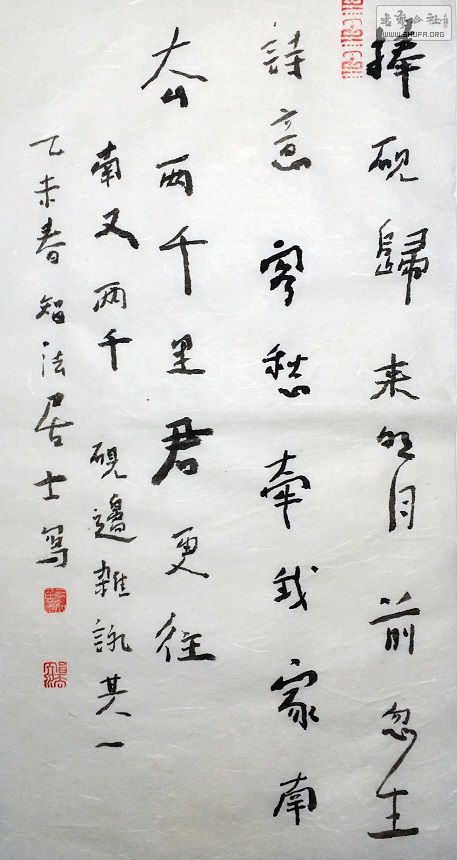 捧硯歸來明月前忽生
詩意寥愁牽我家南
去两千里君更往
南又两千 硯邊雜詠其一
乙未春智法居士寫
WWW.SHUFA.ORG